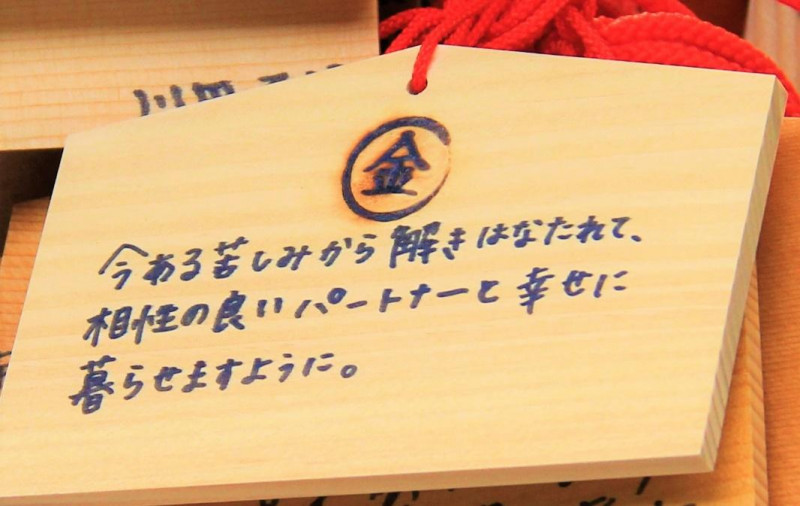 金
今ある苦しみから解きはなたれて、
相性の良いパートナーと幸せに
暮らせますように。